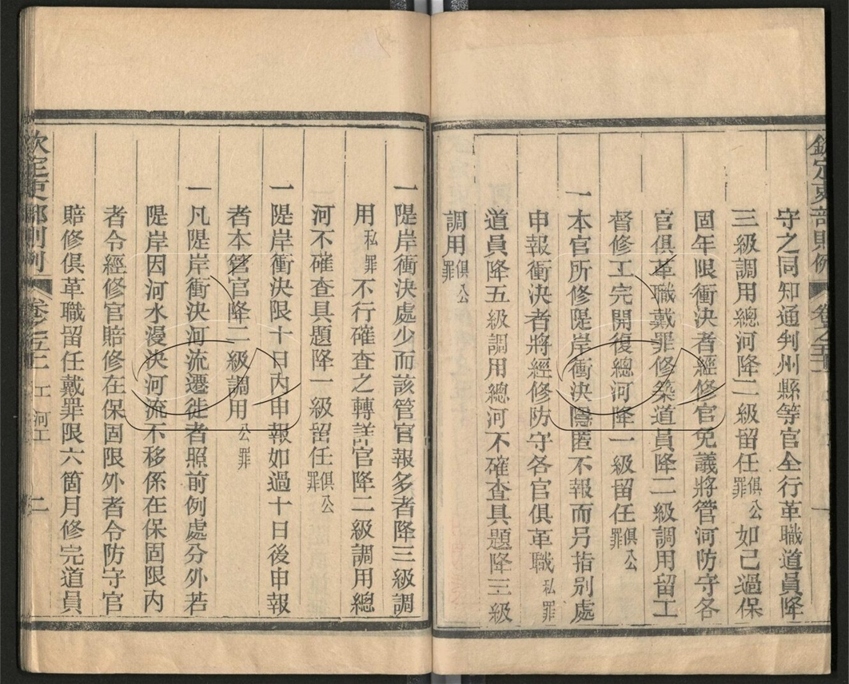 欽定吏部則例
卷之五十二
一
守之同知通判州縣等官全行革職道員降
三級調用總河降二級留任俱公罪如已過保
固年限衝決者經修官免議將管河防守各
官俱革職戴罪修築道員降二級調用留工
督修工完開復總河降一級留任俱公罪
一本官所修隄岸衝決隱匿不報而另指別處
申報衝決者將經修防守各官俱革職私罪
道員降五級調用總河不確查具題降三級
調用俱公罪
一隄岸衝決處少而該管官報多者降三級調
用私罪不行確查之轉詳官降二級調用總
河不確查具題降一級留任俱公罪
一隄岸衝決限十日內申報如過十日後申報
者本管官降二級調用公罪
一凡隄岸衝決河流遷徙者照前例處分外若
隄岸因河水漫決河流不移係在保固限內
者令經修官賠修在保固限外者令防守官
賠修俱革職留任戴罪限六箇月修完道員
欽定吏部則例
卷之五十二
工
河工
二